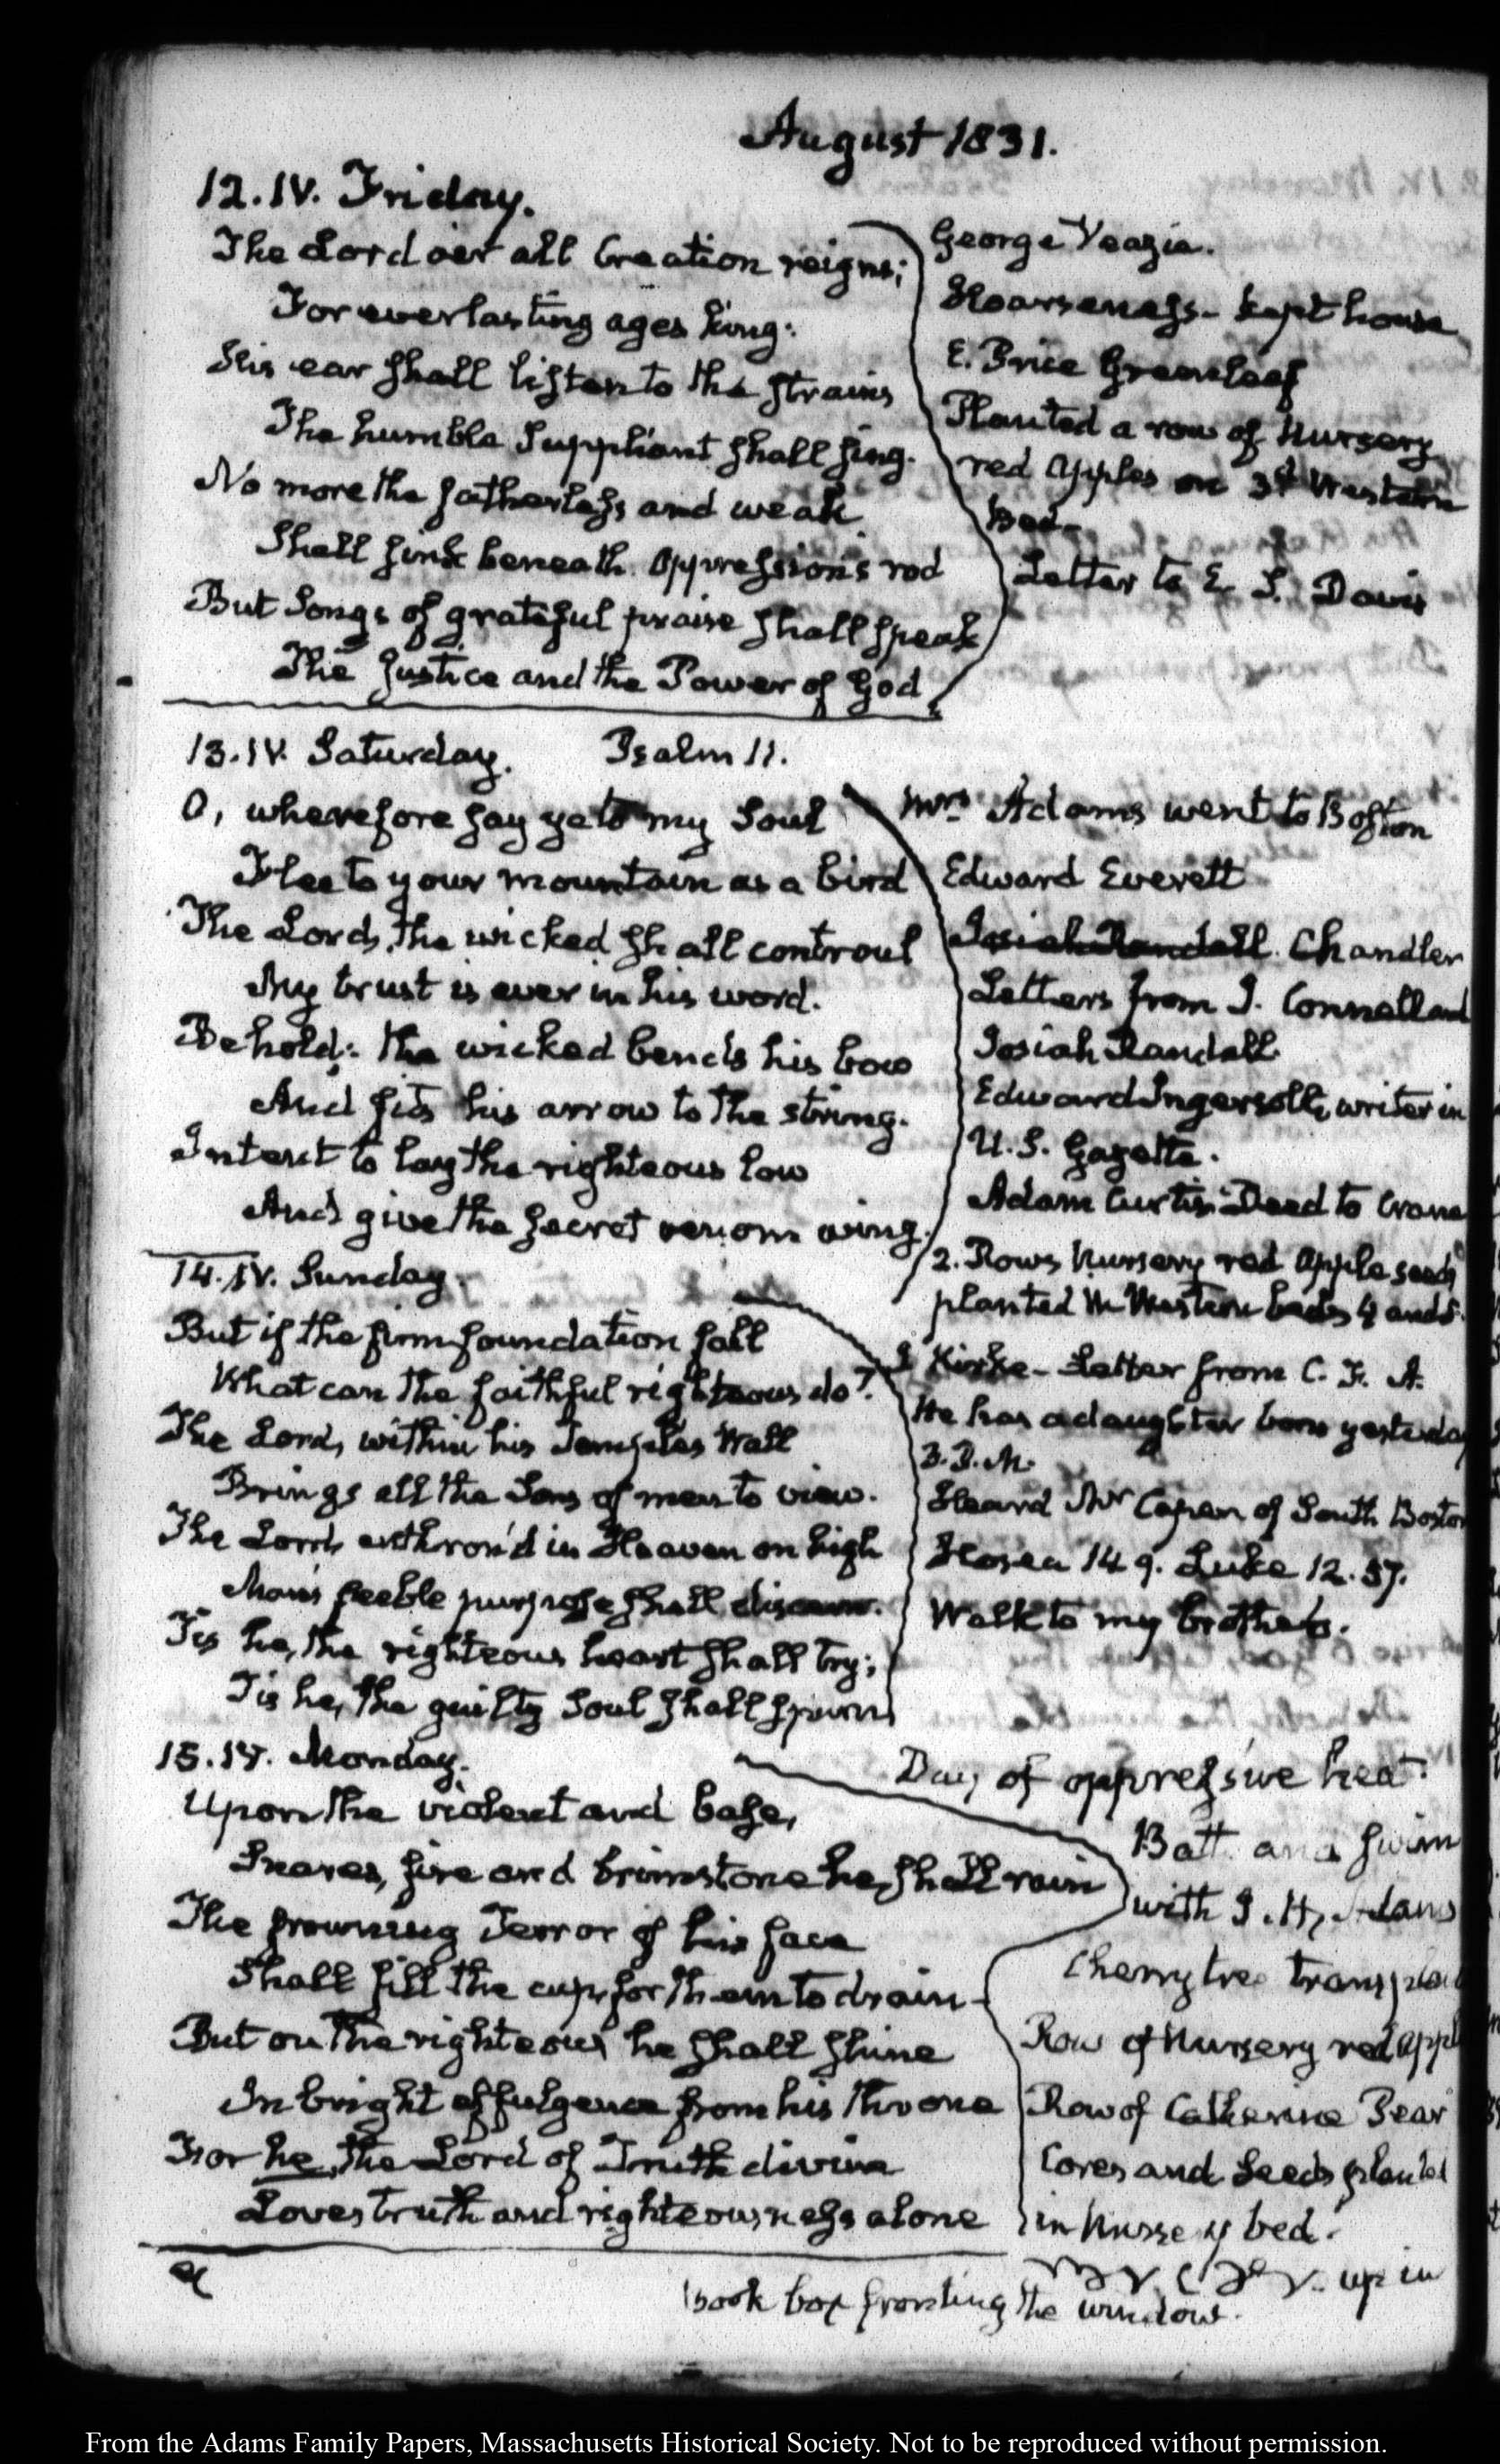 August 1831.
12. IV. Friday.
The Lord oer all Creation reigns;
For everlasting ages king:
His ear shall listen to the strains
The humble Suppliant shall sing.
No more the fatherless and weak
Shall sink beneath oppression's rod
But Songs of grateful praise shall speak
The Justice and the Power of God
George Veazie.
Hoarseness - kept house
E. Price Greenleaf
Planted a row of Nursery
red Apples on 3d Western
Bed-
Letter to E. S. Davis
13. IV. Saturday. Psalm 11.
O, wherefore say ye to my Soul
Flee to your mountain as a bird
The Lord, the wicked shall controul
My trust is ever in his word.
Behold: the wicked bends his bow
And fits his arrow to the string.
Intent to lay the righteous low
And give the secret venom wing.
Mrs Adams went to Boston
Edward Everett
Josiah Randall. Chandler
Letters from J. Connell and
Josiah Randall
Edward Ingersoll, writer in
U.S. Gazette.
Adam Curtis Deed to Crane
2. Rows Nursery red Apple seeds
planted in Western beds 4 and 5.
14. IV. Sunday.
But if the firm foundation fall
What can the faithful righteous do?
The Lord, within his Temples Wall
Brings all the Sons of men to view.
The Lord, enthron'd in Heaven on high
Man's feeble purpose shall discern.
Tis he, the righteous heart shall try;
Tis he, the guilty Soul shall spurn
J Kirke - Letter from C. F. A.
He has a daughter born yesterday
Heard Mr Capen of South Boston
Hosea 14 9. Luke 12. 57.
Walk to my brother's.
15. IV. Monday.
Upon the violent and base,
Snares, fire and brimstone he shall rain
The frowning Terror of his face
Shall fill the cup, for them to drain-
But on the righteous he shall shine
In bright effulgence from his throne
For he, the Lord of Truth divine
Loves truth and righteousness alone
Day of oppressive heat.
Bath and swim
with J. H. Adams
Cherry tree transplan
Row of Nursery red appl
Row of Catherine Pear
Cores and Seeds planted
in Nursery bed.
up in
Book box fronting the window.
From the Adams Family Papers, Massachusetts Historical Society. Not to be reproduced without permission.